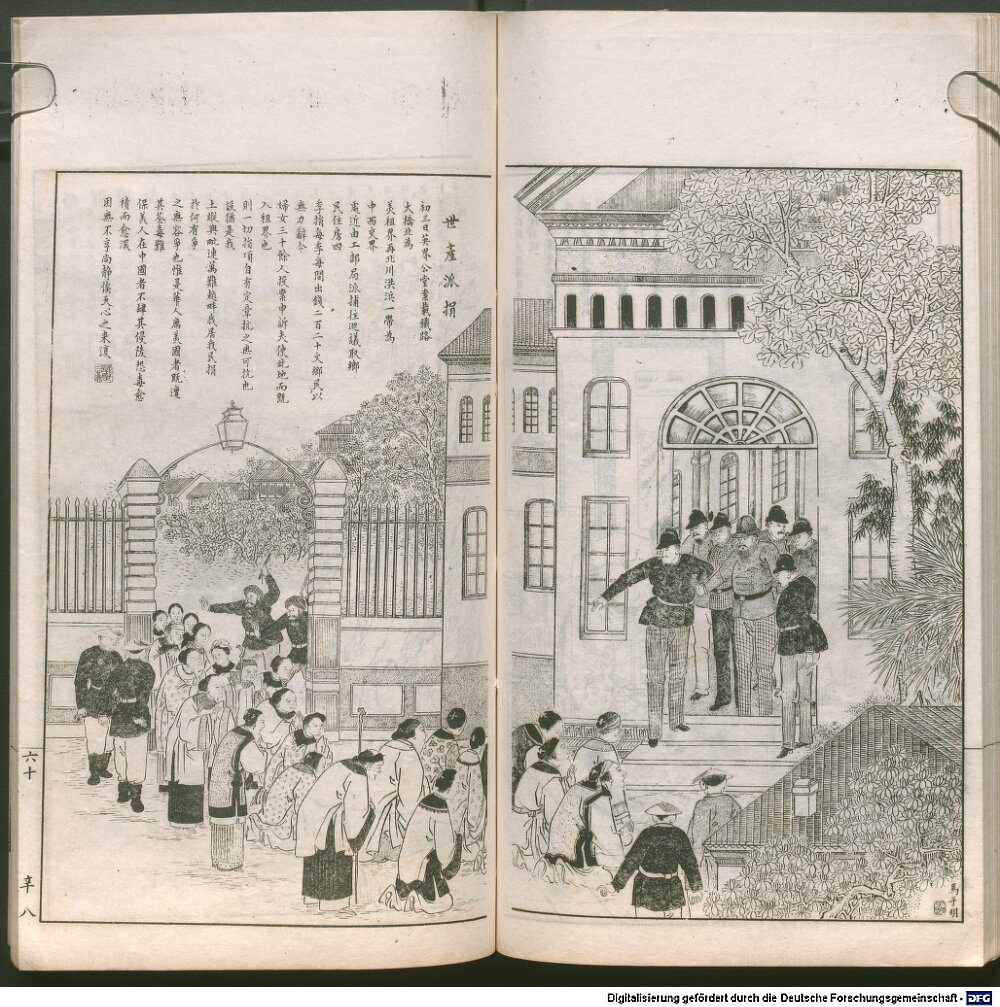 世產派捐
初三日英界公堂業載鐵路
大橋北為
美租界再北川洪浜一帶為
中西交界
處近由工部局派捕往巡議取鄉
民住房四
季捐每季每間出錢二百二十文鄉民以
無力辭今
婦女三十餘人投案申訴夫使此地而既
入租界也
則一切捐項自有定章抗之無可抗也
設猶是我
土歟與毗連萬難越畔我居我民捐
於何有事
之無容爭也惟是華人寓美國者既遭
其荼毒難
保美人在中國者不肆其侵陵怨毒愈
積而愈深
困無不亨尚靜俟天心之來復
六十
辛八
馬子明
Digitalisierung gefördert durch die Deutsche Forschungsgemeinschaft - DFG